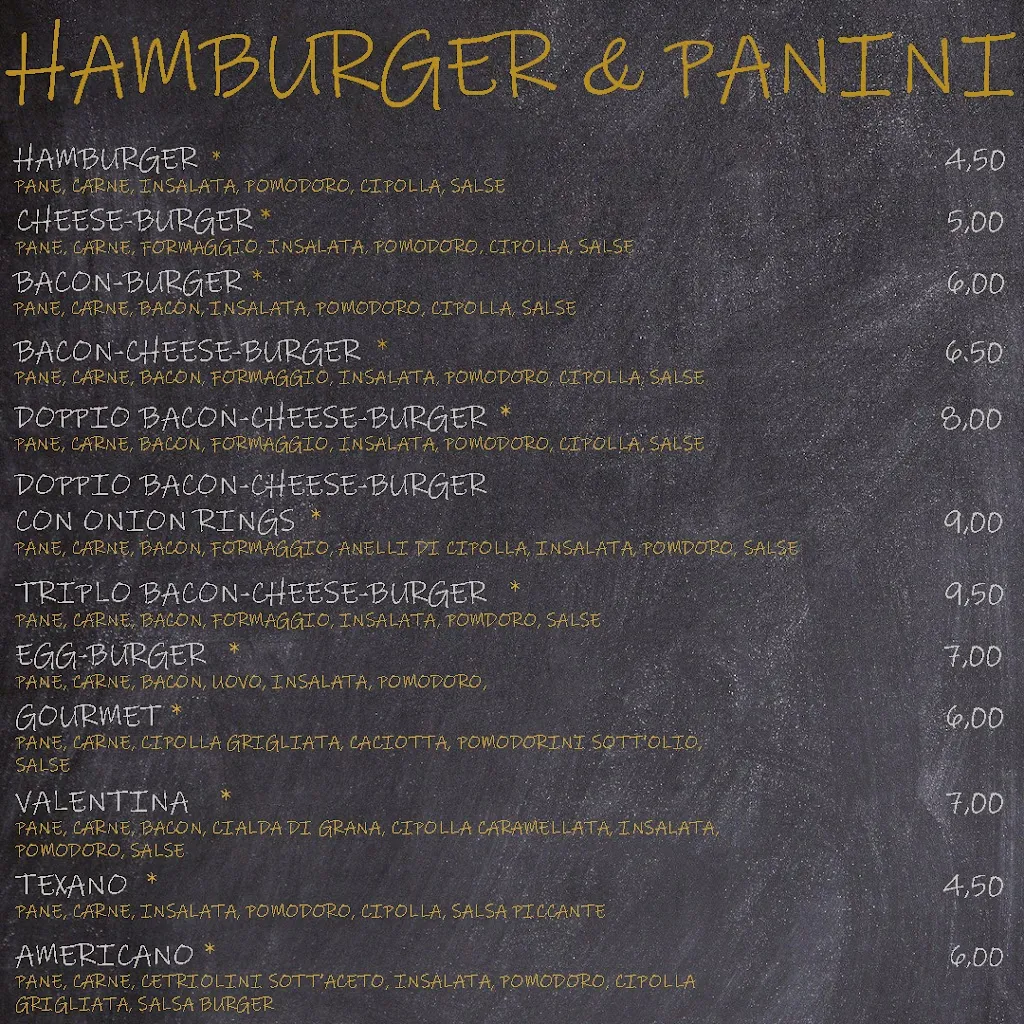 HAMBURGER & PANINI
HAMBURGER * 4,50
PANE, CARNE, INSALATA, POMODORO, CIPOLLA, SALSE
CHEESE-BURGER * 5,00
PANE, CARNE, FORMAGGIO, INSALATA, POMODORO, CIPOLLA, SALSE
BACON-BURGER * 6,00
PANE, CARNE, BACON, INSALATA, POMODORO, CIPOLLA, SALSE
BACON-CHEESE-BURGER * 6.50
PANE, CARNE, BACON, FORMAGGIO, INSALATA, POMODORO, CIPOLLA, SALSE
DOPPIO BACON-CHEESE-BURGER * 8,00
PANE, CARNE, BACON, FORMAGGIO, INSALATA, POMODORO, CIPOLLA, SALSE
DOPPIO BACON-CHEESE-BURGER
CON ONION RINGS * 9,00
PANE, CARNE, BACON, FORMAGGIO, ANELLI DI CIPOLLA, INSALATA, POMDORO, SALSE
TRIPLO BACON-CHEESE-BURGER * 9,50
PANE, CARNE, BACON, FORMAGGIO, INSALATA, POMDORO, SALSE
EGG-BURGER * 7,00
PANE, CARNE, BACON, UOVO, INSALATA, POMODORO,
GOURMET * 6,00
PANE, CARNE, CIPOLLA GRIGLIATA, CACIOTTA, POMODORINI SOTT'OLIO,
SALSE
VALENTINA * 7,00
PANE, CARNE, BACON, CIALDA DI GRANA, CIPOLLA CARAMELLATA, INSALATA,
POMODORO, SALSE
TEXANO * 4,50
PANE, CARNE, INSALATA, POMODORO, CIPOLLA, SALSA PICCANTE
AMERICANO * 6,00
PANE, CARNE, CETRIOLINI SOTT'ACETO, INSALATA, POMODORO, CIPOLLA
GRIGLIATA, SALSA BURGER